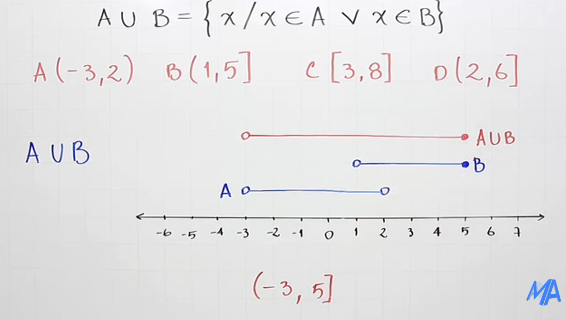 A ∪ B = { x / x ∈ A ∨ x ∈ B}
A (-3, 2) B (1, 5] C [3, 8] D (2, 6]
A ∪ B
A∪B
B
A
-6 -5 -4 -3 -2 -1 0 1 2 3 4 5 6 7
(-3, 5]
MA